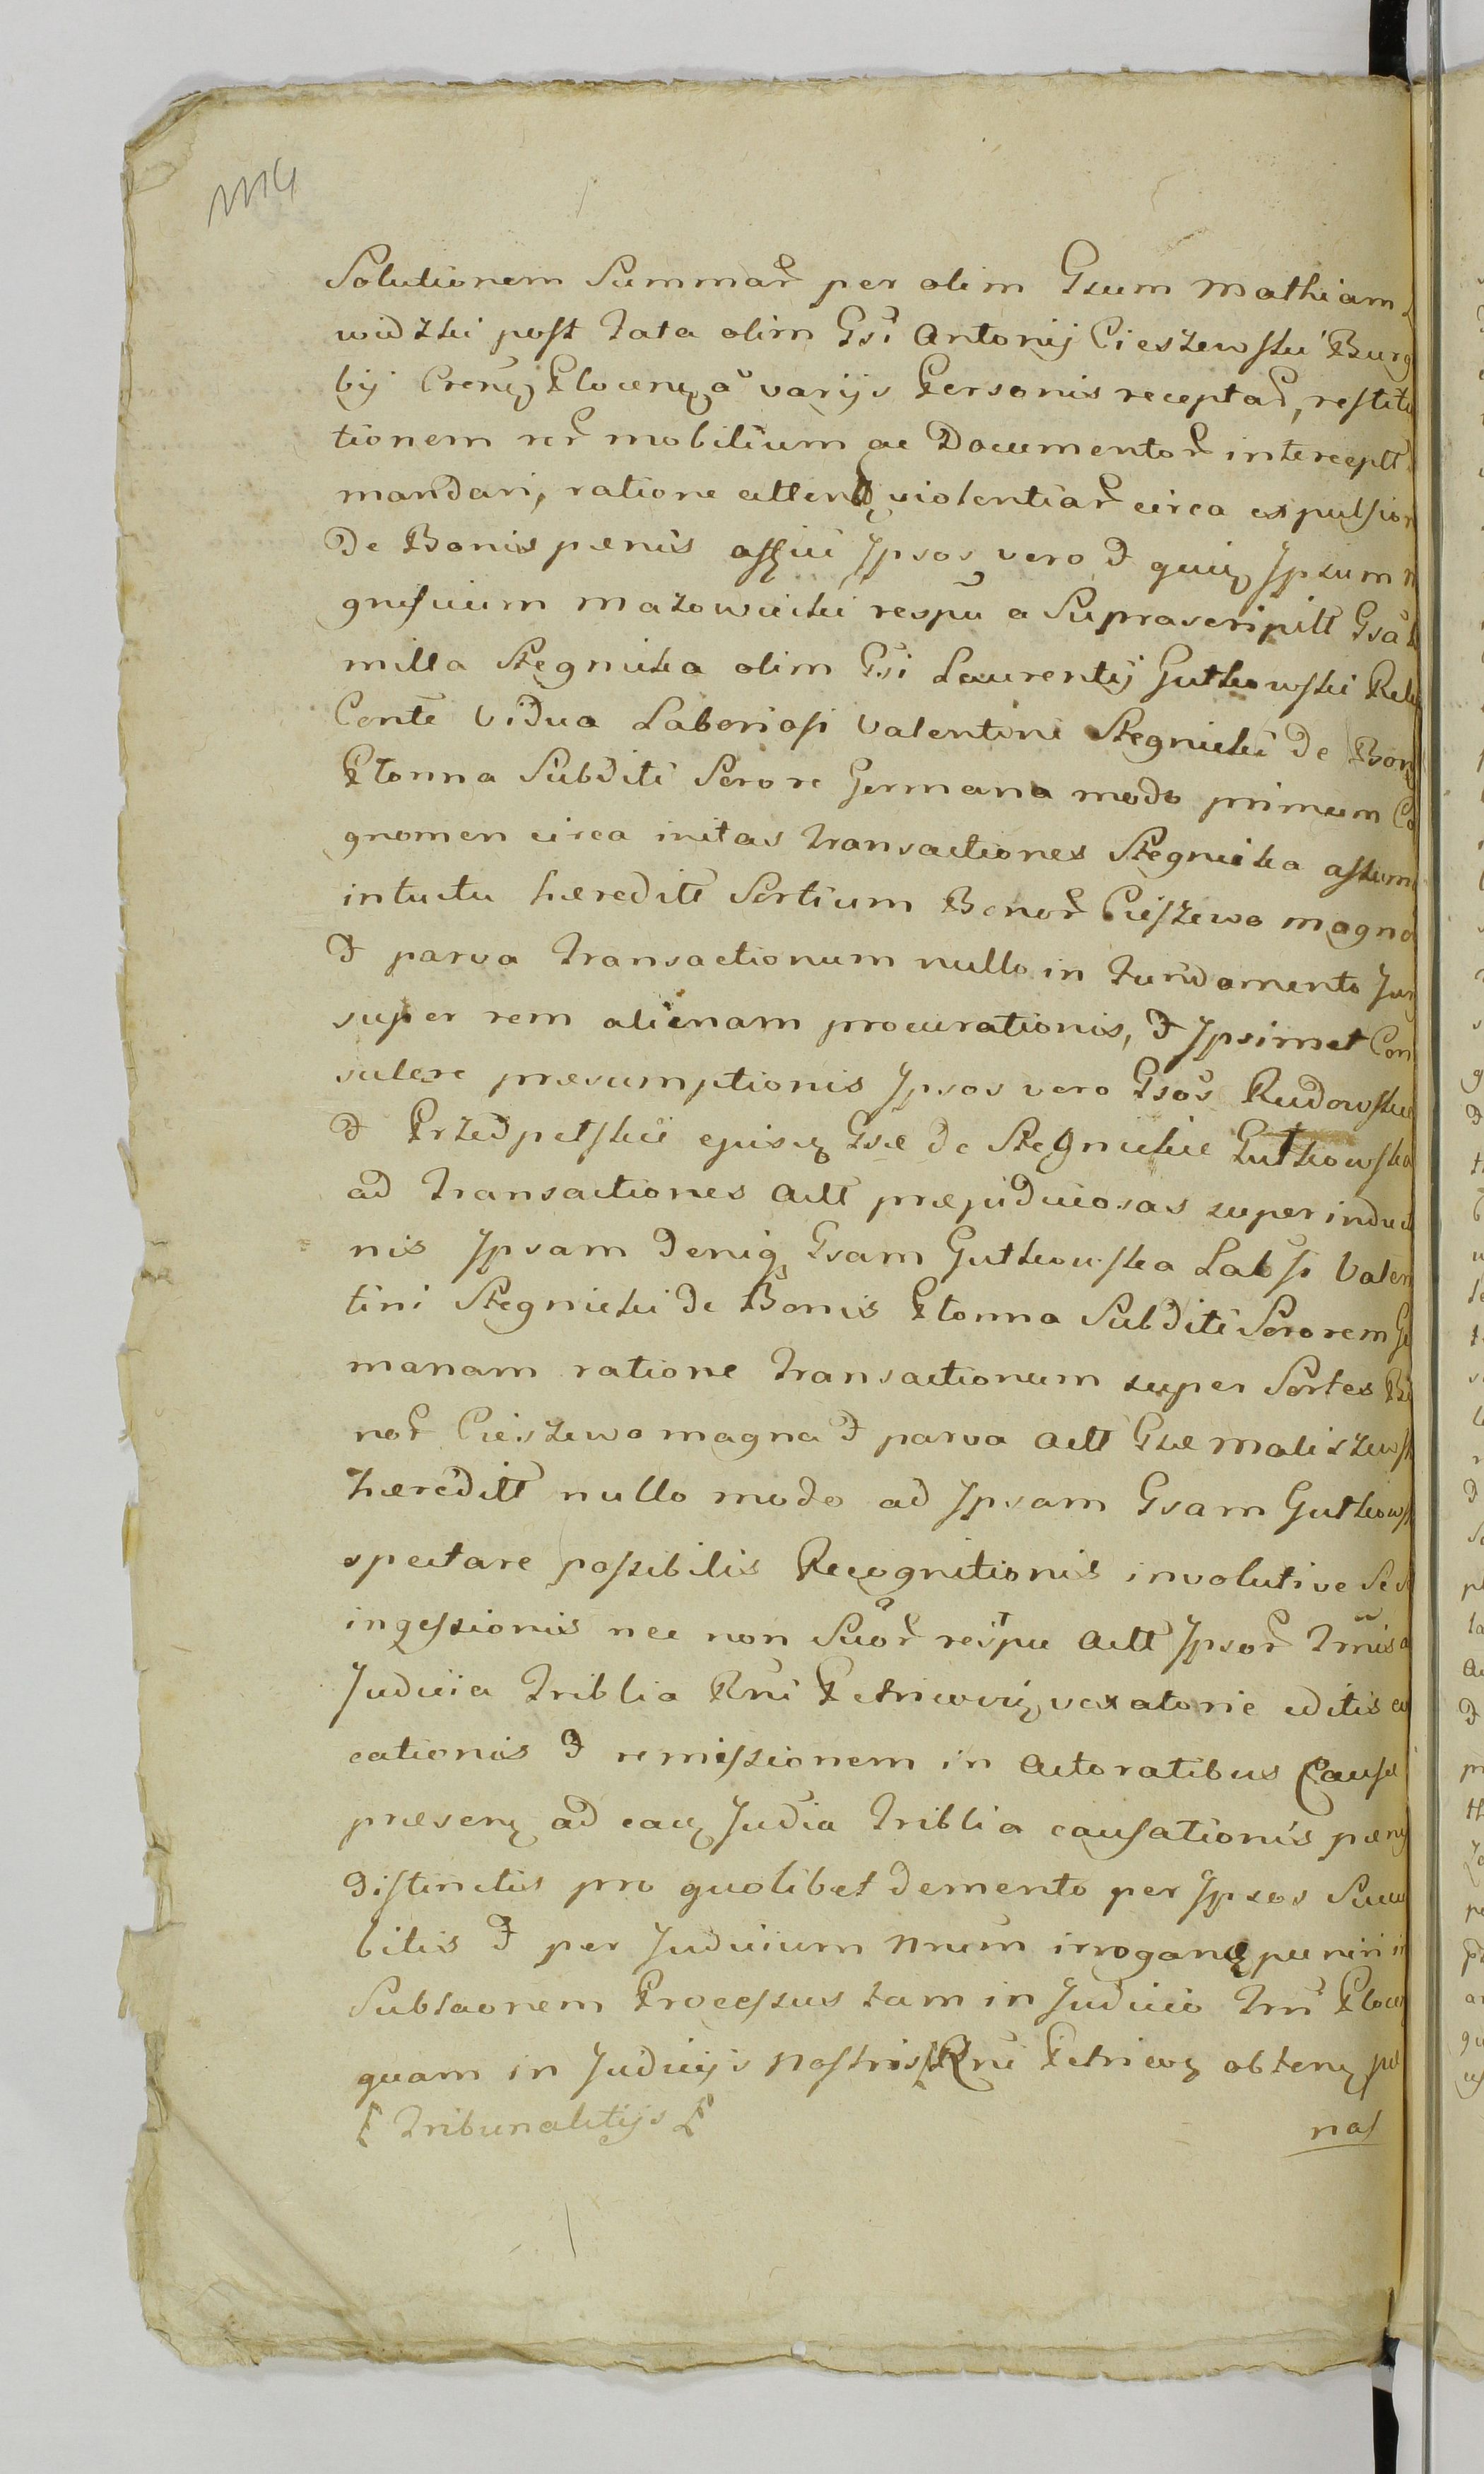 Solutionem Summar per olim Gsum Mathiam
widzki post Fata olim Gsi Antonij Cieszewski Burg
bij Crenẽ Plocenẽ à varijs Personis receptar, restitu
tionem rer mobilium ac Documentor interceptt
mandari, ratione attentt violentiar circa expulsion
De Bonis pœnis affici Ipsos vero &
gnificum Mazowiecki respu a Suprascriptt Gsa
milla Stegnicka olim Gsi Laurentij Gutkowski Reli
Conte Vidua Laboriosi Valentini Stegnicki De Bon
Płonna Subditi Sorore Germana modo primum Co
gnomen circa initas Transactiones Stegnicka assum
intuitu hæreditt Sortium Bonor Cieszewo magna
& parva Transactionum nullo in Fundamento Jur
super rem alienam procurationis, & Ipsimet Con
sulere præsumptionis Ipsos vero Gsos Rudowskie
& Przedpełskie ejusq Gsæ De Stegnickie Gutkowska
ad Transactiones Actt præjudiciosas superinducti
nis Ipsam Deniq Gsam Gutkowska Labsi Valen
tini Stegnicki De Bonis Płonna Subditi Sororem Ge
manam ratione Transactionum super Sortes Bo
nor Cieszewo magna & parva Actt Gsæ Maliszews
hæreditt nullo modo ad Ipsam Gsam Gutkows
spectare possibilis Recognitionis involutive Sed
ingessionis nec non Suor respu Actt Ipsor Tmis a
Judicia Triblia Rni Petricovien vexatorie editis ev
cationis & remissionem in Actoratibus Causæ
præsen ad eaq Judia Triblia causationis pœn
Distinctis pro quolibet Demento per Ipsos Succu
bitis & per Judicium Nrum irrogan puniri in
Subsaonem Processus tam in Judicio Trri Ploce
quam in Judicijs Nostris Rni Petricov obten pe
Tribunalitijs
nas